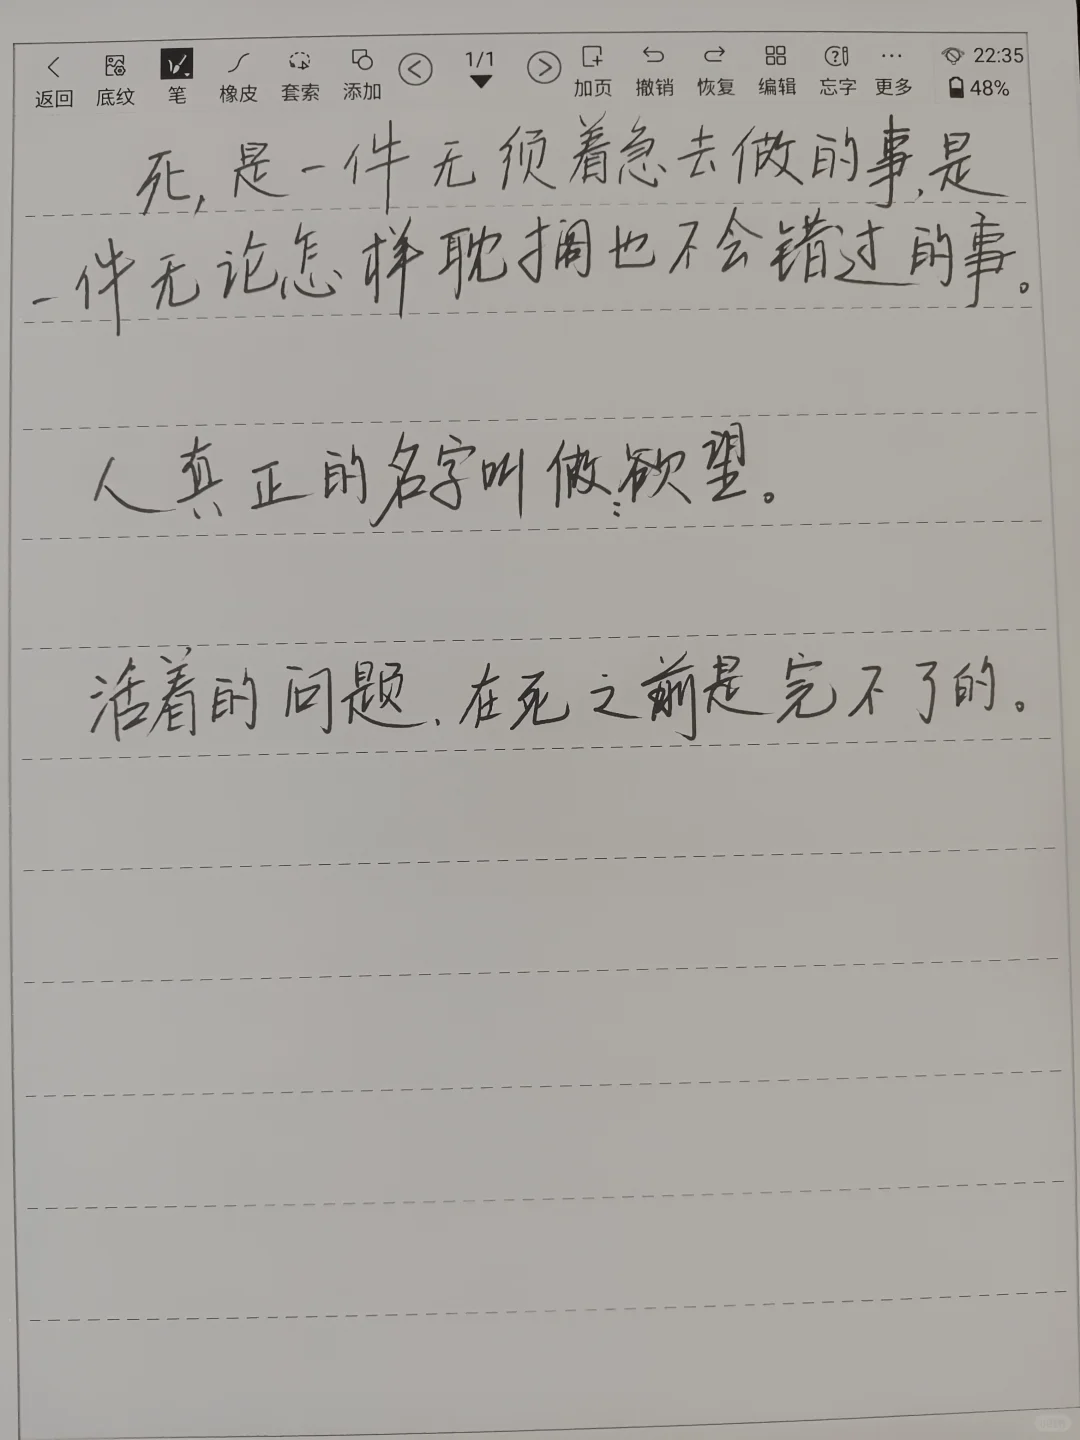 返回 底纹 笔 橡皮 套索 添加 1/1 加页 撤销 恢复 编辑 忘字 更多 22:35 48%
死,是一件无须着急去做的事,是
一件无论怎样耽搁也不会错过的事。
人真正的名字叫做:欲望。
活着的问题,在死之前是完不了的。